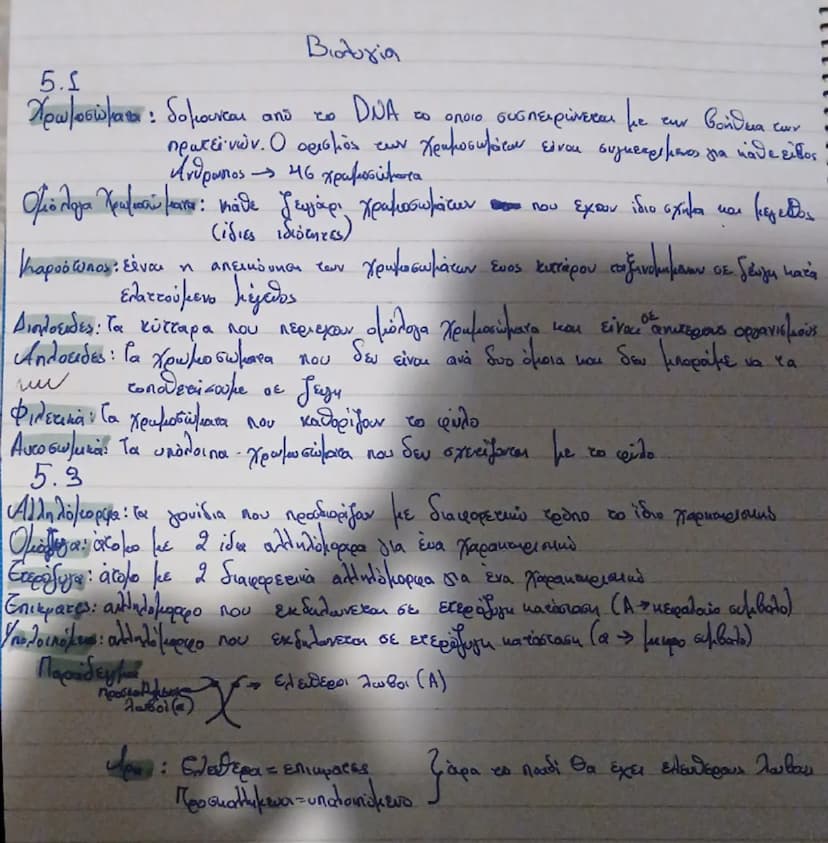 Βιολογία
5.1
Χρωμοσώματα: δομουνται από το DNA το οποιο συσπειρώνεται με την βοήθεια των
πρωτεϊνών. Ο αριθμός των χρωμοσωμάτων είναι συγκεκριμενος για κάθε είδος
Ανθρωπος → 46 χρωμοσώματα
Ομόλογα Χρωμοσώματα: κάθε ζευγάρι χρωμοσωμάτων που εχουν ίδιο σχημα και μεγεθος
(ίδιες ιδιότητες)
Καρυότυπος: Είναι η απεικόνιση των χρωμοσωμάτων ενος κυττάρου ταξινομημενων σε ζεύγη κατά
ελαττούμενο μέγεθος
Διπλοειδες: Τα κύτταρα που περιεχουν ομόλογα χρωμοσώματα και είναι σε ανωτερους οργανισμούς
Απλοειδες: Τα χρωμοσωματα που δεν είναι ανά δυο όμοια και δεν μποράμε να τα
τοποθετησουμε σε ζευγη
Φιλετικά: Τα χρωμοσώματα που καθορίζουν το φύλο
Αυτοσωμικά: Τα υπόλοιπα χρωμοσώματα που δεν σχετίζονται με το φύλο
5.3
Αλληλόμορφα: τα γονίδια που προσδιορίζουν με διαφορετικό τρόπο το ίδιο χαρακτηριστικό
Ομόζυγα: άτομο με 2 ίδια αλληλόμορφα για ένα χαρακτηριστικό
Ετερόζυγα: άτομο με 2 διαφορετικά αλληλόμορφα για ένα χαρακτηριστικό
Επικρατες: αλληλόμορφο που εκδηλωνεται σε ετερόζυγη κατάσταση (Α → κεφαλαίο συμβολο)
Υπολειπόμενο: αλληλόμορφο που εκδηλωνεται σε ετερόζυγη κατάσταση (α → μικρο συμβολο)
Παράδειγμα
Προσκολλημενοι → Ελευθεροι λωβοι (Α)
λωβοί (α)
Αρα: Ελευθερα = επικρατες } άρα το παιδί θα έχει ελευθερους λωβους
Προσκολλημενα = υπολοιπόμενο